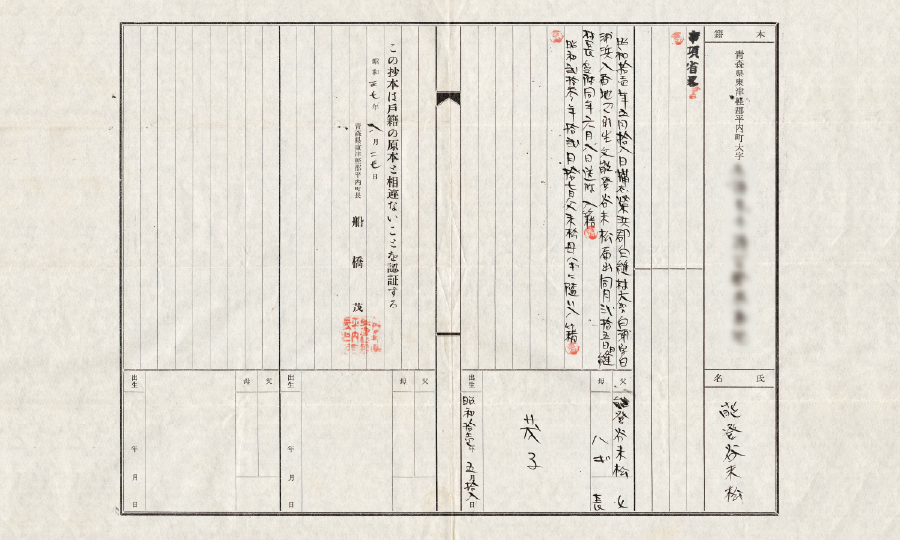 本籍
青森県東津軽郡平内町大字
氏名
能登谷末松
事項省略
昭和拾壱年五月拾八日樺太栄浜郡白縫村大字白浦字白
浦浜八番地で出生父能登谷末松届出同月弐拾五日白縫
村長受附同年六月八日送附入籍
昭和弐拾年拾弐月拾七日父末松母ハギに随い入籍
父
能登谷末松
母
ハギ
長女
茂子
出生
昭和拾壱年五月拾八日
この抄本は戸籍の原本と相違ないことを認証する
昭和三七年八月二七日
青森県東津軽郡平内町長
船橋茂
父
母
出生
年月日
父
母
出生
年月日